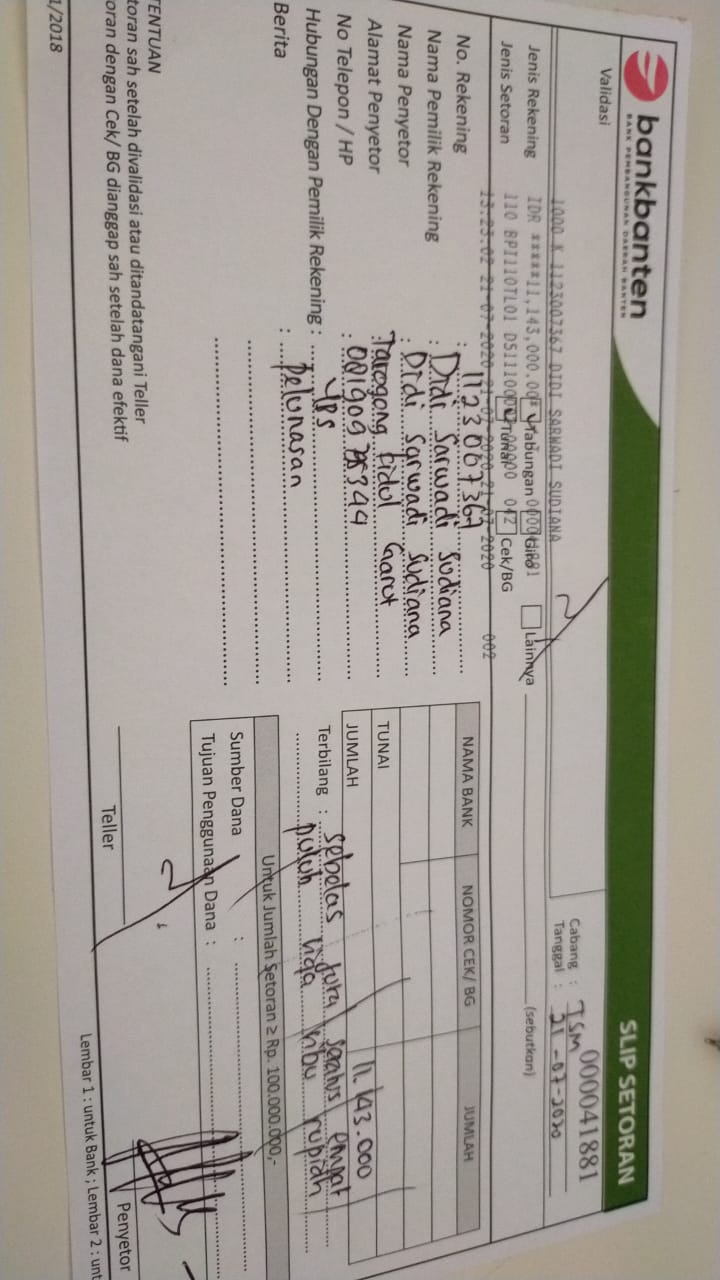 bankbanten
BANK PEMBANGUNAN DAERAH BANTEN
SLIP SETORAN
000041881
Validasi
Cabang : TSM
Tanggal : 21-07-2020
1000 K 1123007367 DIDI SARWADI SUDIANA
IDR *****11,143,000.00
110 BPI110TL01 DS11100
13:23:02 21-07-2020 21-07-2020 21-07-2020 002
Jenis Rekening Tabungan Giro Lainnya (sebutkan)
Jenis Setoran Tunai Cek/BG
No. Rekening : 1123007367
Nama Pemilik Rekening : Didi Sarwadi Sudiana
Nama Penyetor : Didi Sarwadi Sudiana
Alamat Penyetor : Tarogong Kidul Garut
No Telepon / HP :
Hubungan Dengan Pemilik Rekening : YBS
Berita : Pelunasan
NAMA BANK NOMOR CEK/ BG JUMLAH
TUNAI 11.143.000
JUMLAH
Terbilang : Sebelas juta seratus empat
puluh tiga ribu rupiah
Untuk Jumlah Setoran ≥ Rp. 100.000.000,-
Sumber Dana :
Tujuan Penggunaan Dana :
TENTUAN
toran sah setelah divalidasi atau ditandatangani Teller
oran dengan Cek/ BG dianggap sah setelah dana efektif
Teller
Penyetor
1/2018
Lembar 1 : untuk Bank ; Lembar 2 : unt